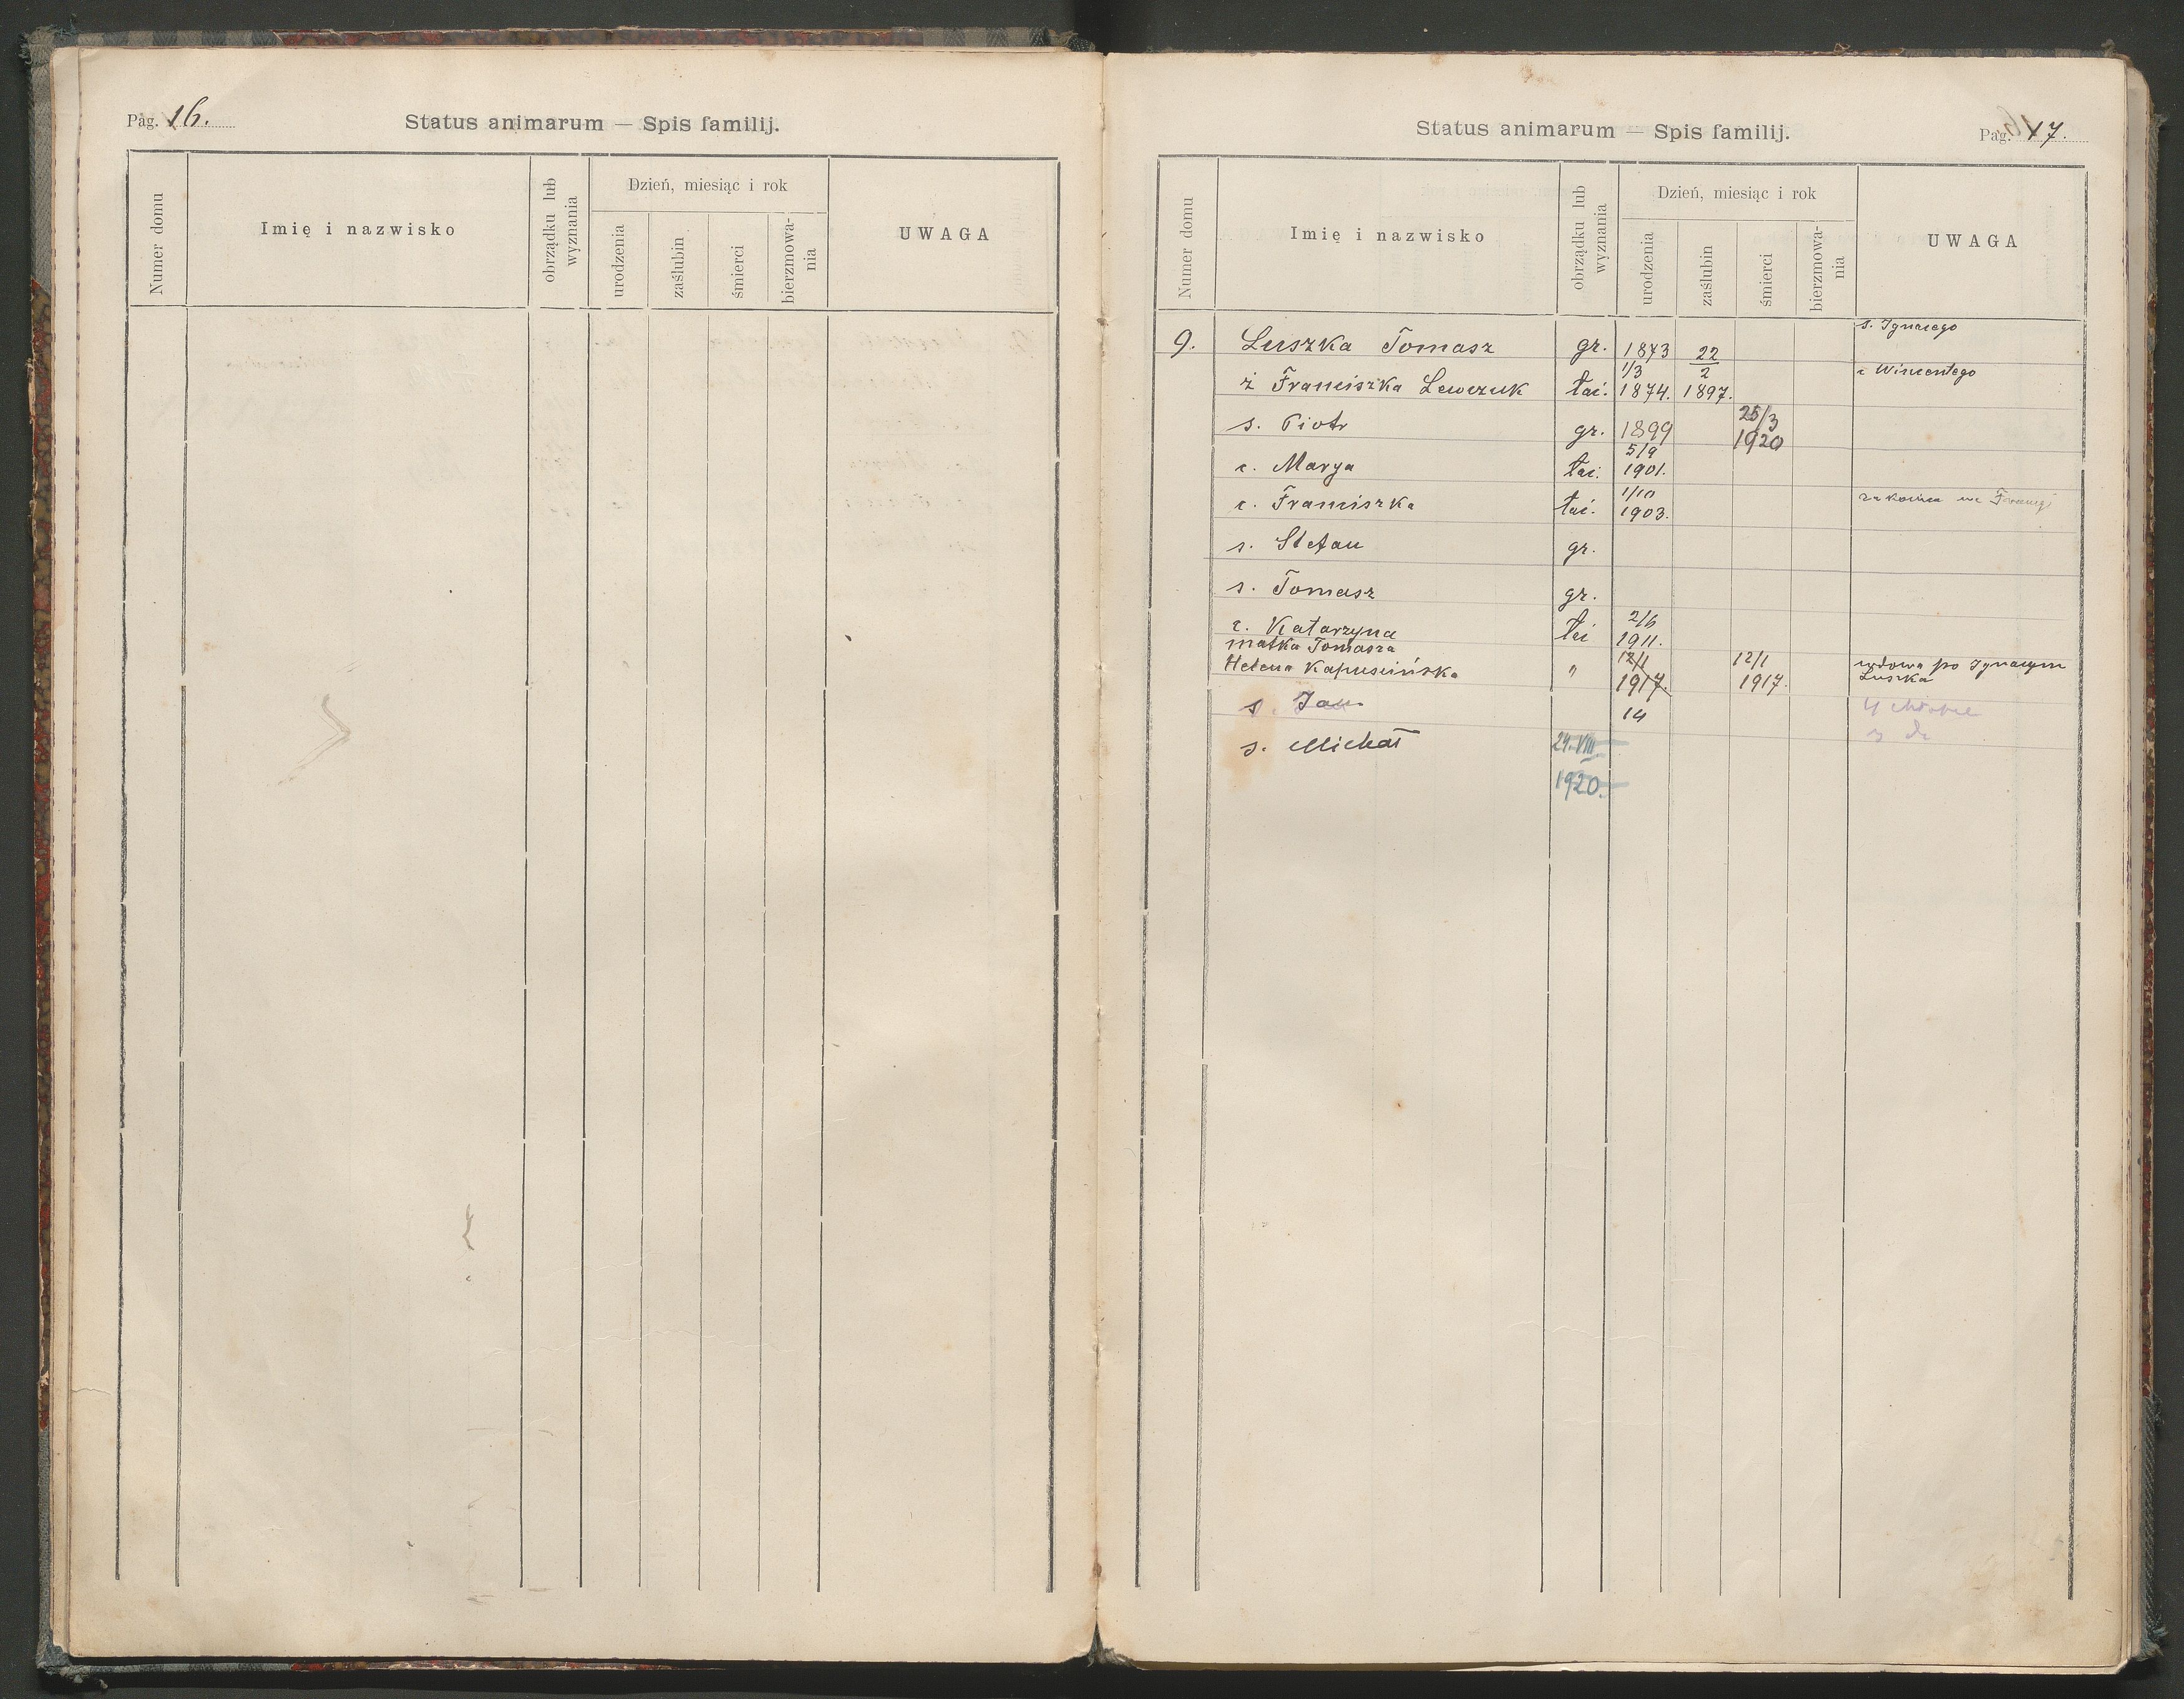 Pag. 16.
Status animarum — Spis familij.
Numer domu
Imię i nazwisko
obrządku lub wyznania
Dzień, miesiąc i rok
urodzenia
zaślubin
śmierci
bierzmowania-
nia
UWAGA
Status animarum — Spis familij.
Pag. 17.
Numer domu
Imię i nazwisko
obrządku lub wyznania
Dzień, miesiąc i rok
urodzenia
zaślubin
śmierci
bierzmowa-
nia
UWAGA
s. Ignacego
9. Luszka Tomasz gr. 1873 22/2
ż Franciszka Lewczuk łać. 1/3 1874. 1897. c Wincentego
s. Piotr gr. 1899 25/3 1920
c. Marya łać. 5/9 1901.
c. Franciszka łać. 1/10 1903. we Francyi
s. Stefan gr.
s. Tomasz gr.
c. Katarzyna łać 2/6 1911.
matka Tomasza
Helena Kapuścińska " 12/1 1917. 12/1 1917. wdowa po Ignacym
Luszka
s. Jan 14
s. Michał 24. VIII
1920.